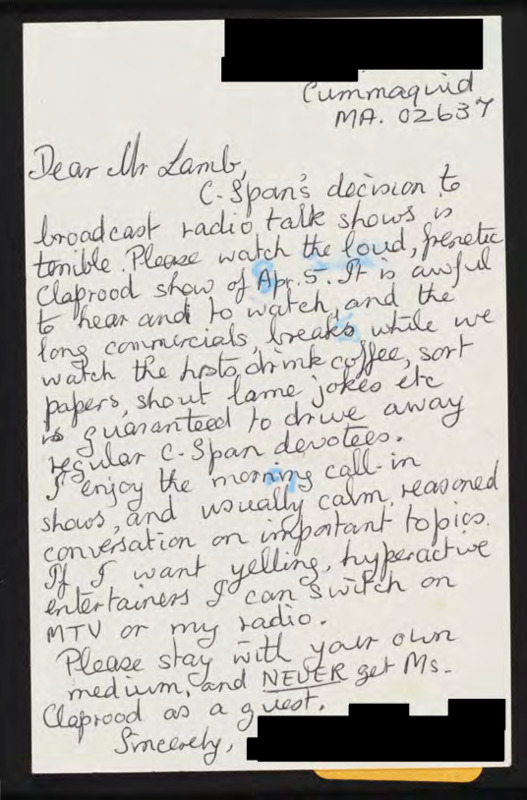 Cummaquid
MA. 02637
Dear Mr Lamb,
C-Span's decision to
broadcast radio talk shows is
terrible. Please watch the loud, frenetic
Claprood show of Apr. 5. It is awful
to hear and to watch, and the
long commercials, breaks while we
watch the hosts, drink coffee, sort
papers, shout lame jokes etc
is guaranteed to drive away
regular C-Span devotees.
I enjoy the morning call-in
shows, and usually calm, reasoned
conversation on important topics.
If I want yelling, hyperactive
entertainers I can switch on
MTV or my radio.
Please stay with your own
medium, and NEVER get Ms.
Claprood as a guest.
Sincerely,